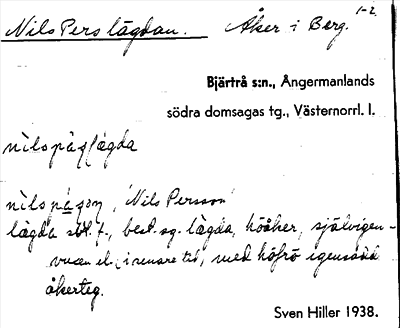 1-2.
Nils Pers lägdan. Åker i Berg.
Bjärtrå s:n., Ångermanlands
södra domsagas tg., Västernorrl. l.
nilspäṣḷägda
nilspäṣon, 'Nils Persson'
lägda sbt. f., best. sg. lägda, höåker, självigen-
vuxen el. i senare tid, med höfrö igensådd
åkerteg.
Sven Hiller 1938.